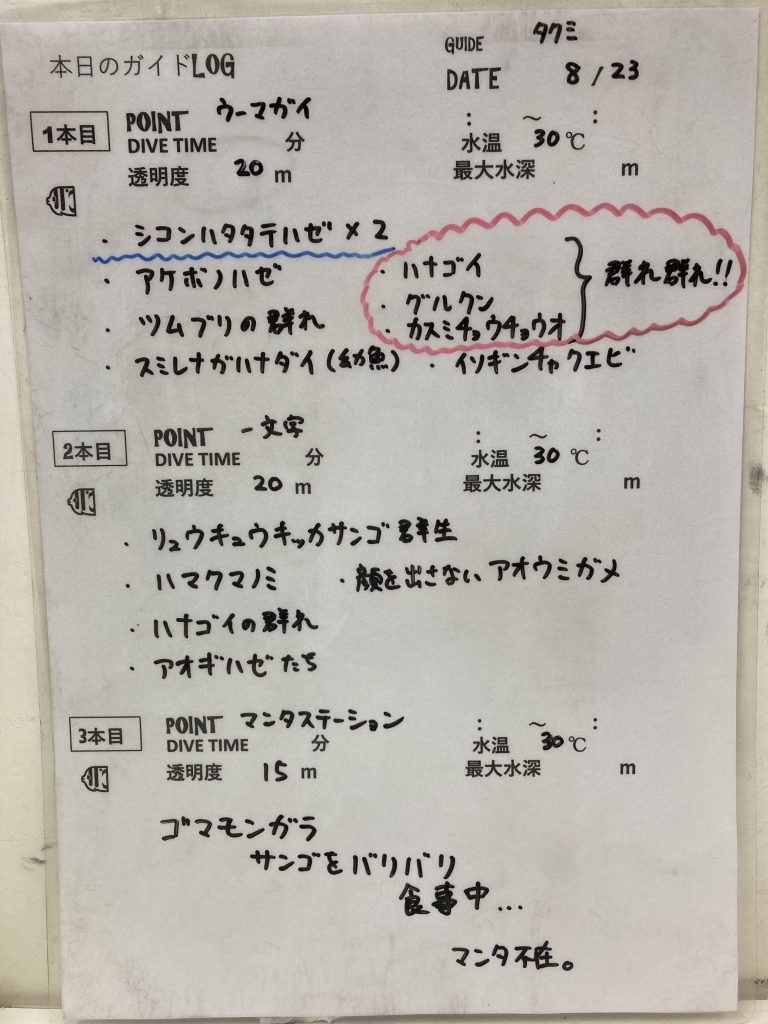 本日のガイドLOG
GUIDE タクミ
DATE 8 / 23
1本目 POINT ウーマガイ : 〜 :
DIVE TIME 分 水温 30 ℃
透明度 20 m 最大水深 m
・シコンハタタテハゼ×2
・アケボノハゼ ・ハナゴイ
・グルクン 群れ群れ!!
・ツムブリの群れ ・カスミチョウチョウオ
・スミレナガハナダイ(幼魚) ・イソギンチャクエビ
2本目 POINT 一文字 : 〜 :
DIVE TIME 分 水温 30 ℃
透明度 20 m 最大水深 m
・リュウキュウキッカサンゴ群生
・ハマクマノミ ・顔を出さないアオウミガメ
・ハナゴイの群れ
・アオギハゼたち
3本目 POINT マンタステーション : 〜 :
DIVE TIME 分 水温 30 ℃
透明度 15 m 最大水深 m
ゴマモンガラ
サンゴをバリバリ
食事中...
マンタ不在。